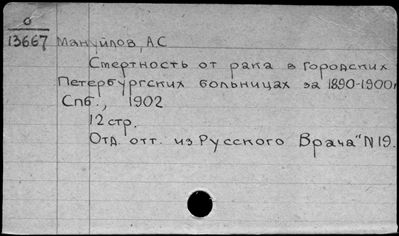 0
13667 Мануйлов, А.С
Смертность от рака в городских
Петербургских больницах за 1890-1900г
Спб., 1902
12 стр.
Отд. отт. из Русского Врача" N 19.